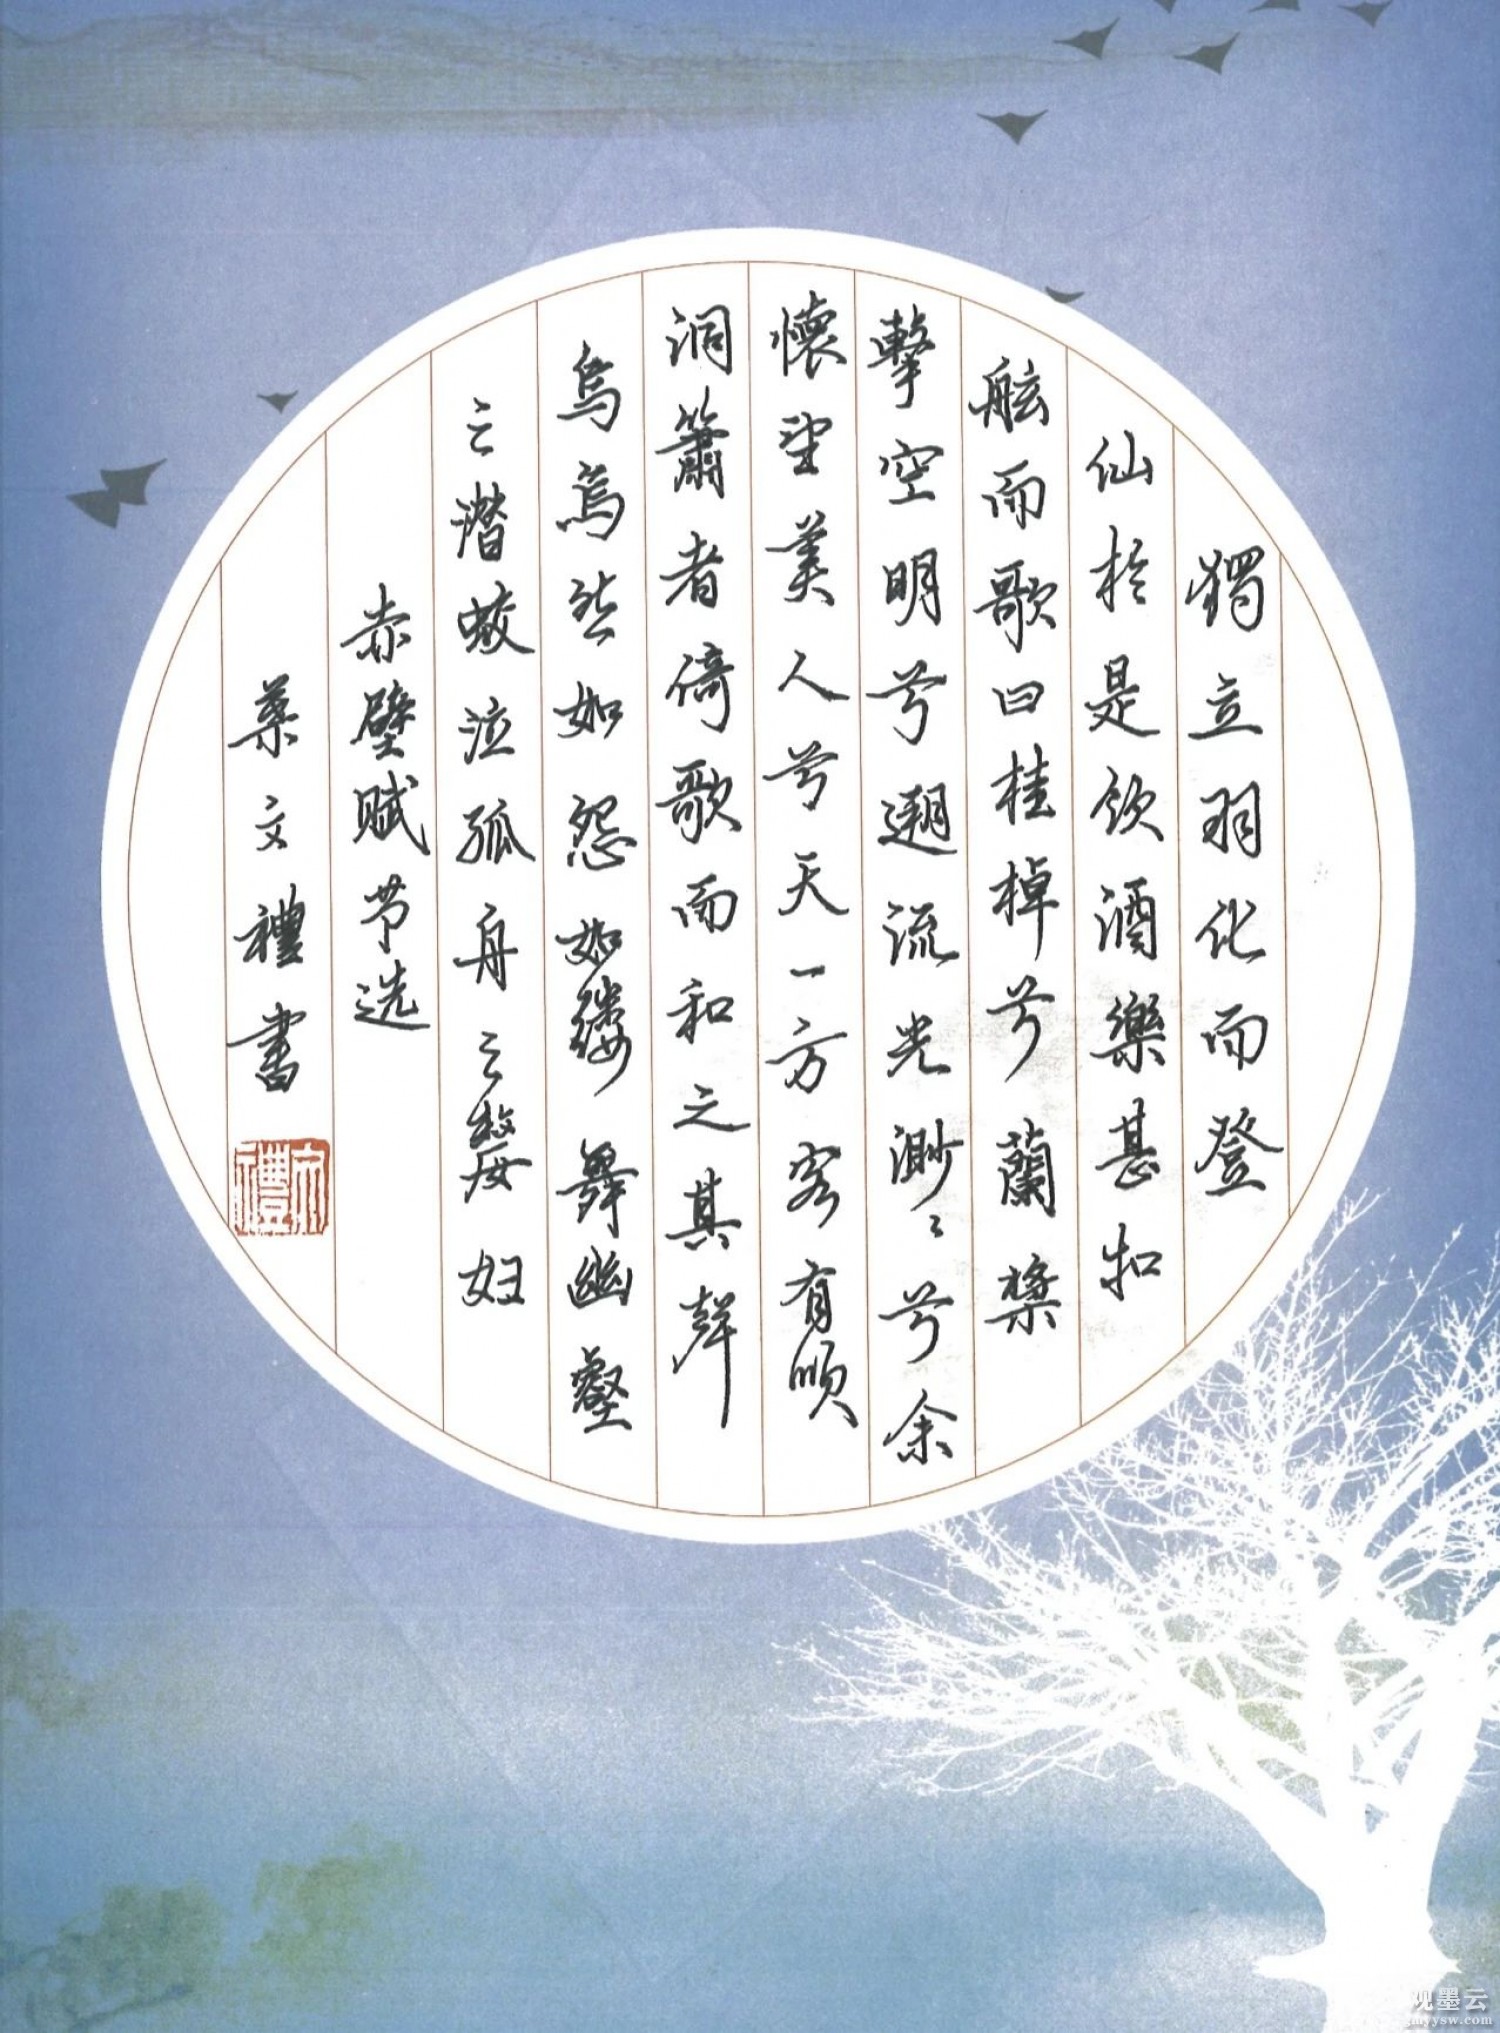 獨立羽化而登
仙於是飲酒樂甚扣
舷而歌曰桂棹兮蘭槳
擊空明兮遡流光渺〻兮余
懷望美人兮天一方客有
洞簫者倚歌而和之其聲
烏烏然如怨如縷舞幽壑
之潜蛟泣孤舟之嫠妇
赤壁賦节选
葉文禮書
观墨云
gmyysw.com